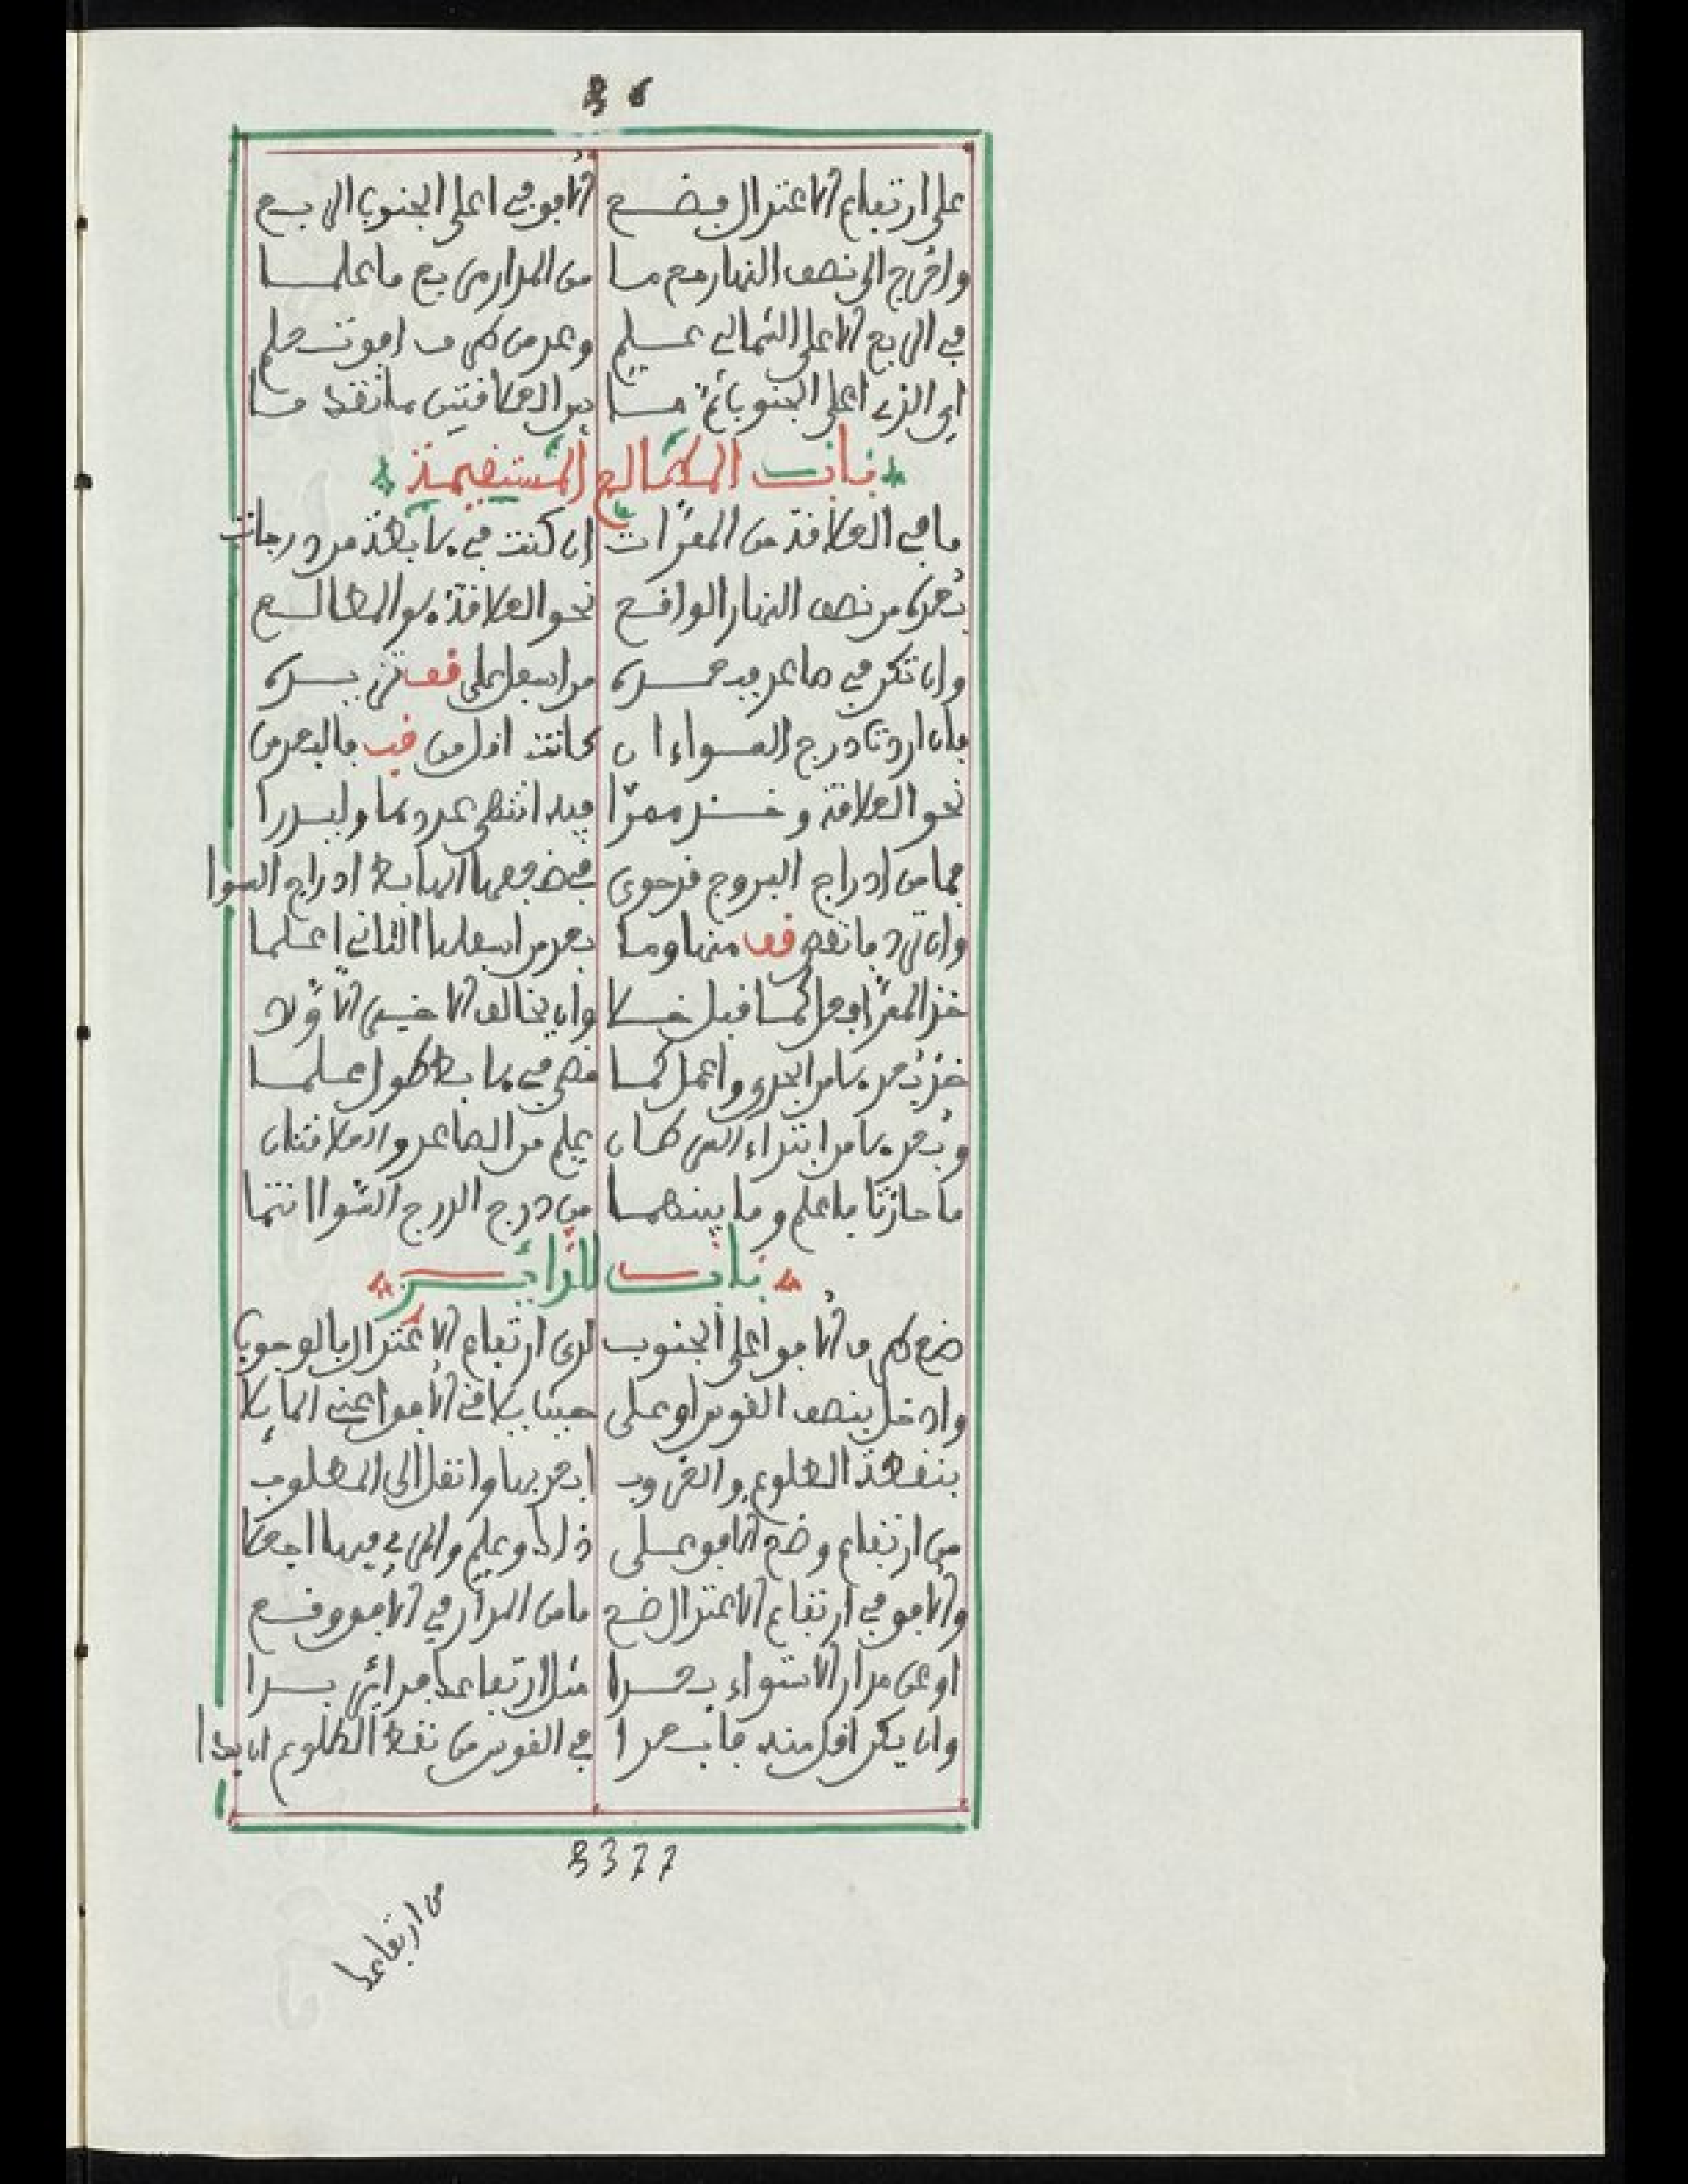 36
على ارتفاع الاعتدال فضع الافق في اعلى الجنوب الربع
واخرج الى نصف النهار مع ما من المدار من ربع ما علما
في الربع الاعلى الشمالي علم وعد من طرف افق تحلم
اي الذي اعلى الجنوب ثم ما بين العلاقتين ما تقدما
باب المطالع المستقيمة
ما في العلاقة من الممرات ان كنت في رابطة من درجات
بعده من نصف النهار الواقع نحو العلاقة هو المطالع
وان تكن في صاعد فبعده من اسفل على قف تزيده
فان اردت درج السواء ان كانت اقل من قف فالبعد من
نحو العلاقة وخذ ممرا فيه انتهى عددها وليدرا
مما من ادراج البروج قد حوى فخيطها الرابط ادراج السوا
وان تزد فانقص قف منها وما بعد من اسفلها الثاني اعلما
خذ الممر افعل كما قبل خلا وان يخالف الاخير الاولا
خذ بعدها من الجدي واعمل كما مضى في رابط طول علما
وبعدها من ابتداء السرطان يعلم من الصاعد والعلاقتان
ما حازتا فاعلم وما بينهما من درج الدرج السوا انتما
باب الدائر
ضع طرف الافق اعلى الجنوب لدى ارتفاع الاعتدال بالوجوب
وادخل بنصف القوس او على حسابك في الافق اعني المايلا
بنقطة الطلوع والغروب ابعد بها وانقل الى المطلوب
من ارتفاع وضع الافق على ذاك وعلم والربع فيها اجعلا
والافق في ارتفاع الاعتدال ضع ما من المدار في الافق وقع
او عن مدار الاستواء بعدا مثل ارتفاعك فدائر بدا
وان يكن اقل منه فابعدا في القوس من نقط الطلوع ان بدا
3377
من ارتفاعك